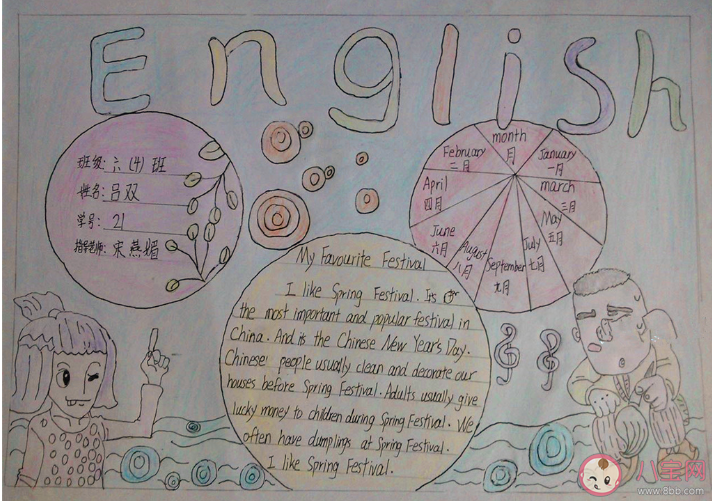 English
班级: 六 (4) 班
姓名: 吕双
学号: 21
指导老师: 宋燕媚
month
月
January
一月
February
二月
march
三月
April
四月
May
五月
June
六月
July
七月
August
八月
September
九月
My Favourite Festival
I like Spring Festival. Its
the most important and popular festival in
China. And is the Chinese New Year's Day.
Chinese people usually clean and decorate our
houses before Spring Festival. Adults usually give
lucky money to children during Spring Festival. We
often have dumplings at Spring Festival.
I like Spring Festival.
八宝网
www.8bb.com